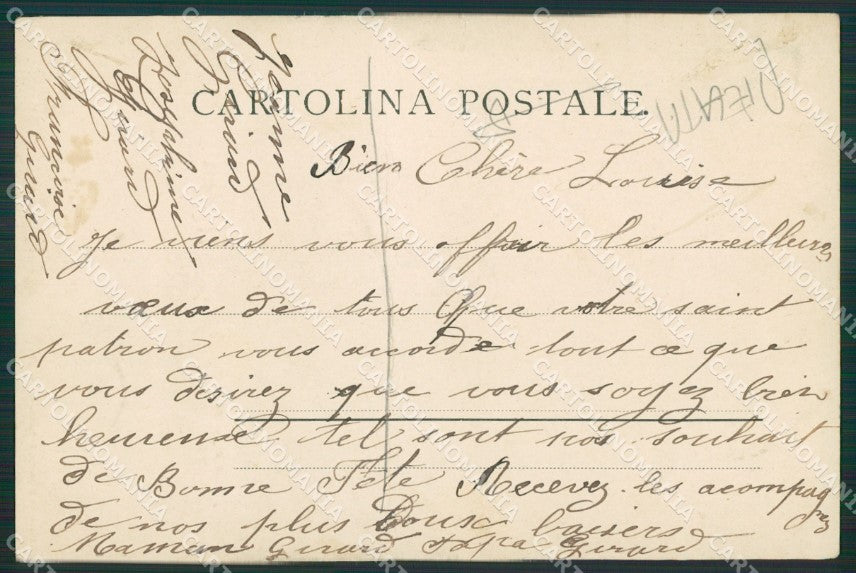 CARTOLINA POSTALE.
Bien Chère Louise
Je viens vous offrir les meilleurs
vœux de tous Que votre saint
patron vous accorde tout ce que
vous desirez que vous soyez bien
heureuse, tel sont nos souhait
de Bonne Fête Recevez les acompag
nez
de nos plus Doux baisers
Maman Girard Papa Girard
Jeanne
Girard
Josephine
Girard
Françoise
Girard
CARTOLINOMANIA